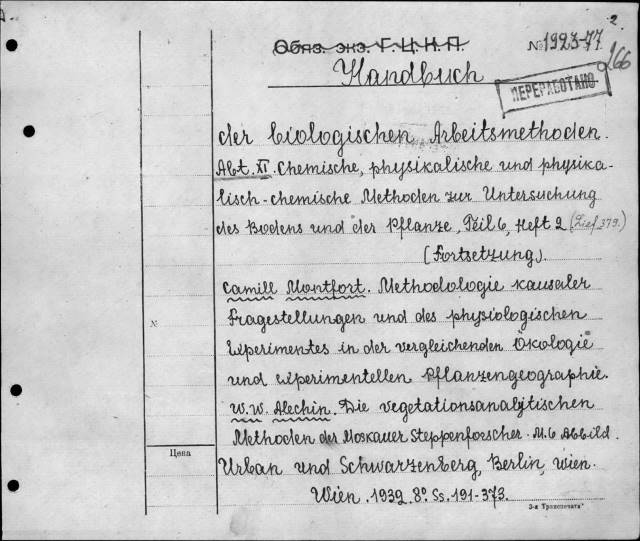 2
Обяз. экз. Г.Ц.К.П.
№ 1923-77
266
Handbuch
ПЕРЕРАБОТАНО
der biologischen Arbeitsmethoden.
Abt. XI. Chemische, physikalische und physika-
lisch-chemische Methoden zur Untersuchung
des Bodens und der Pflanze, Teil 6, Heft 2 (Lief 379.)
(Fortsetzung).
Camill Montfort. Methodologie kausaler
Fragestellungen und des physiologischen
Experimentes in der vergleichenden Ökologie
und experimentellen Pflanzengeographie.
W.W. Alechin. Die vegetationsanalytischen
Methoden der Moskauer Steppenforscher. M. 6 Abbild.
Цена
Urban und Schwarzenberg, Berlin, Wien.
Wien. 1932. 8°. Ss. 191-373.
3-я Транспечать